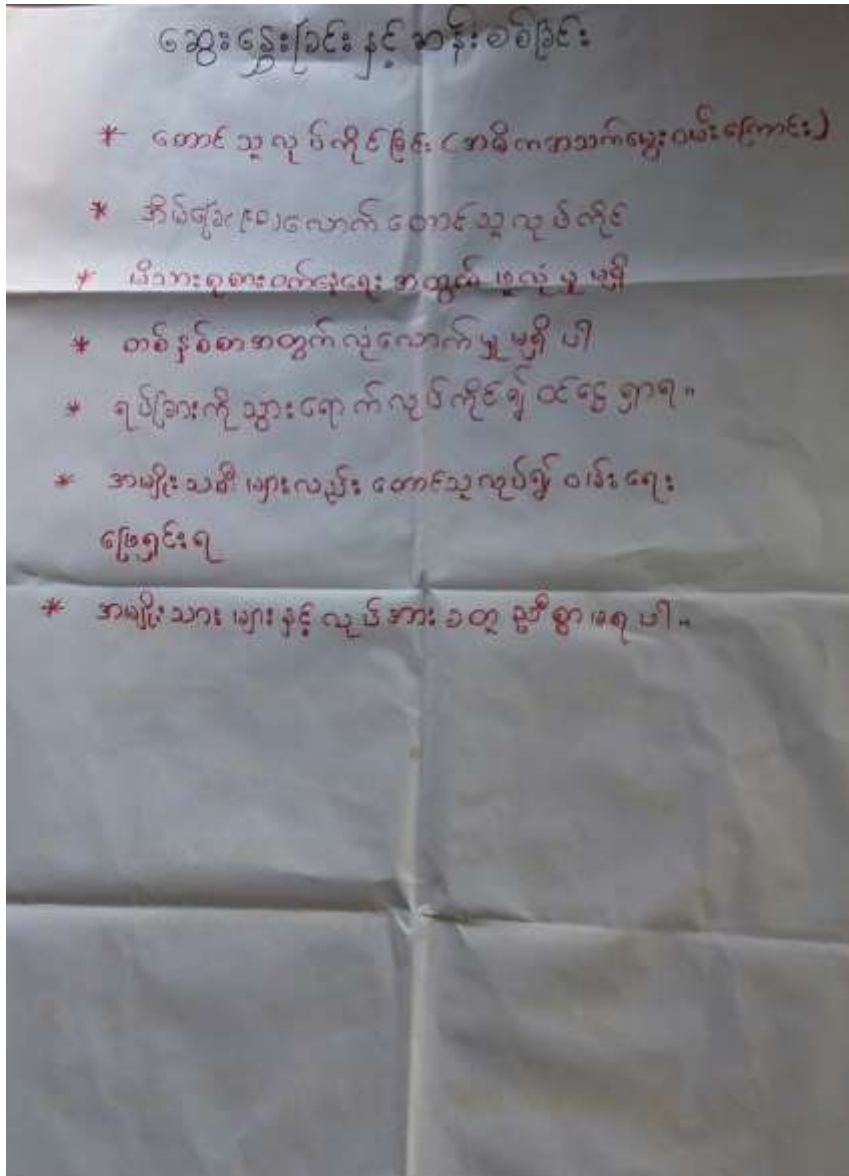 ဆွေးနွေးခြင်းနှင့် ဆန်းစစ်ခြင်း
* တောင်သူလုပ်ကိုင်ခြင်း (အဓိကအသက်မွေးဝမ်းကြောင်း)
* အိမ်ခြေ(၉၀)လောက် တောင်သူလုပ်ကိုင်
* မိသားစုစားဝတ်နေရေး အတွက် ဖူလုံမှုမရှိ
* တစ်နှစ်စာအတွက်လုံလောက်မှုမရှိပါ
* ရပ်ခြားကိုသွားရောက်လုပ်ကိုင်၍ ဝင်ငွေရှာရ။
* အမျိုးသမီးများလည်း တောင်သူလုပ်၍ ဝမ်းရေး
ဖြေရှင်းရ
* အမျိုးသားများနှင့် လုပ်အားခတူညီစွာမရပါ။